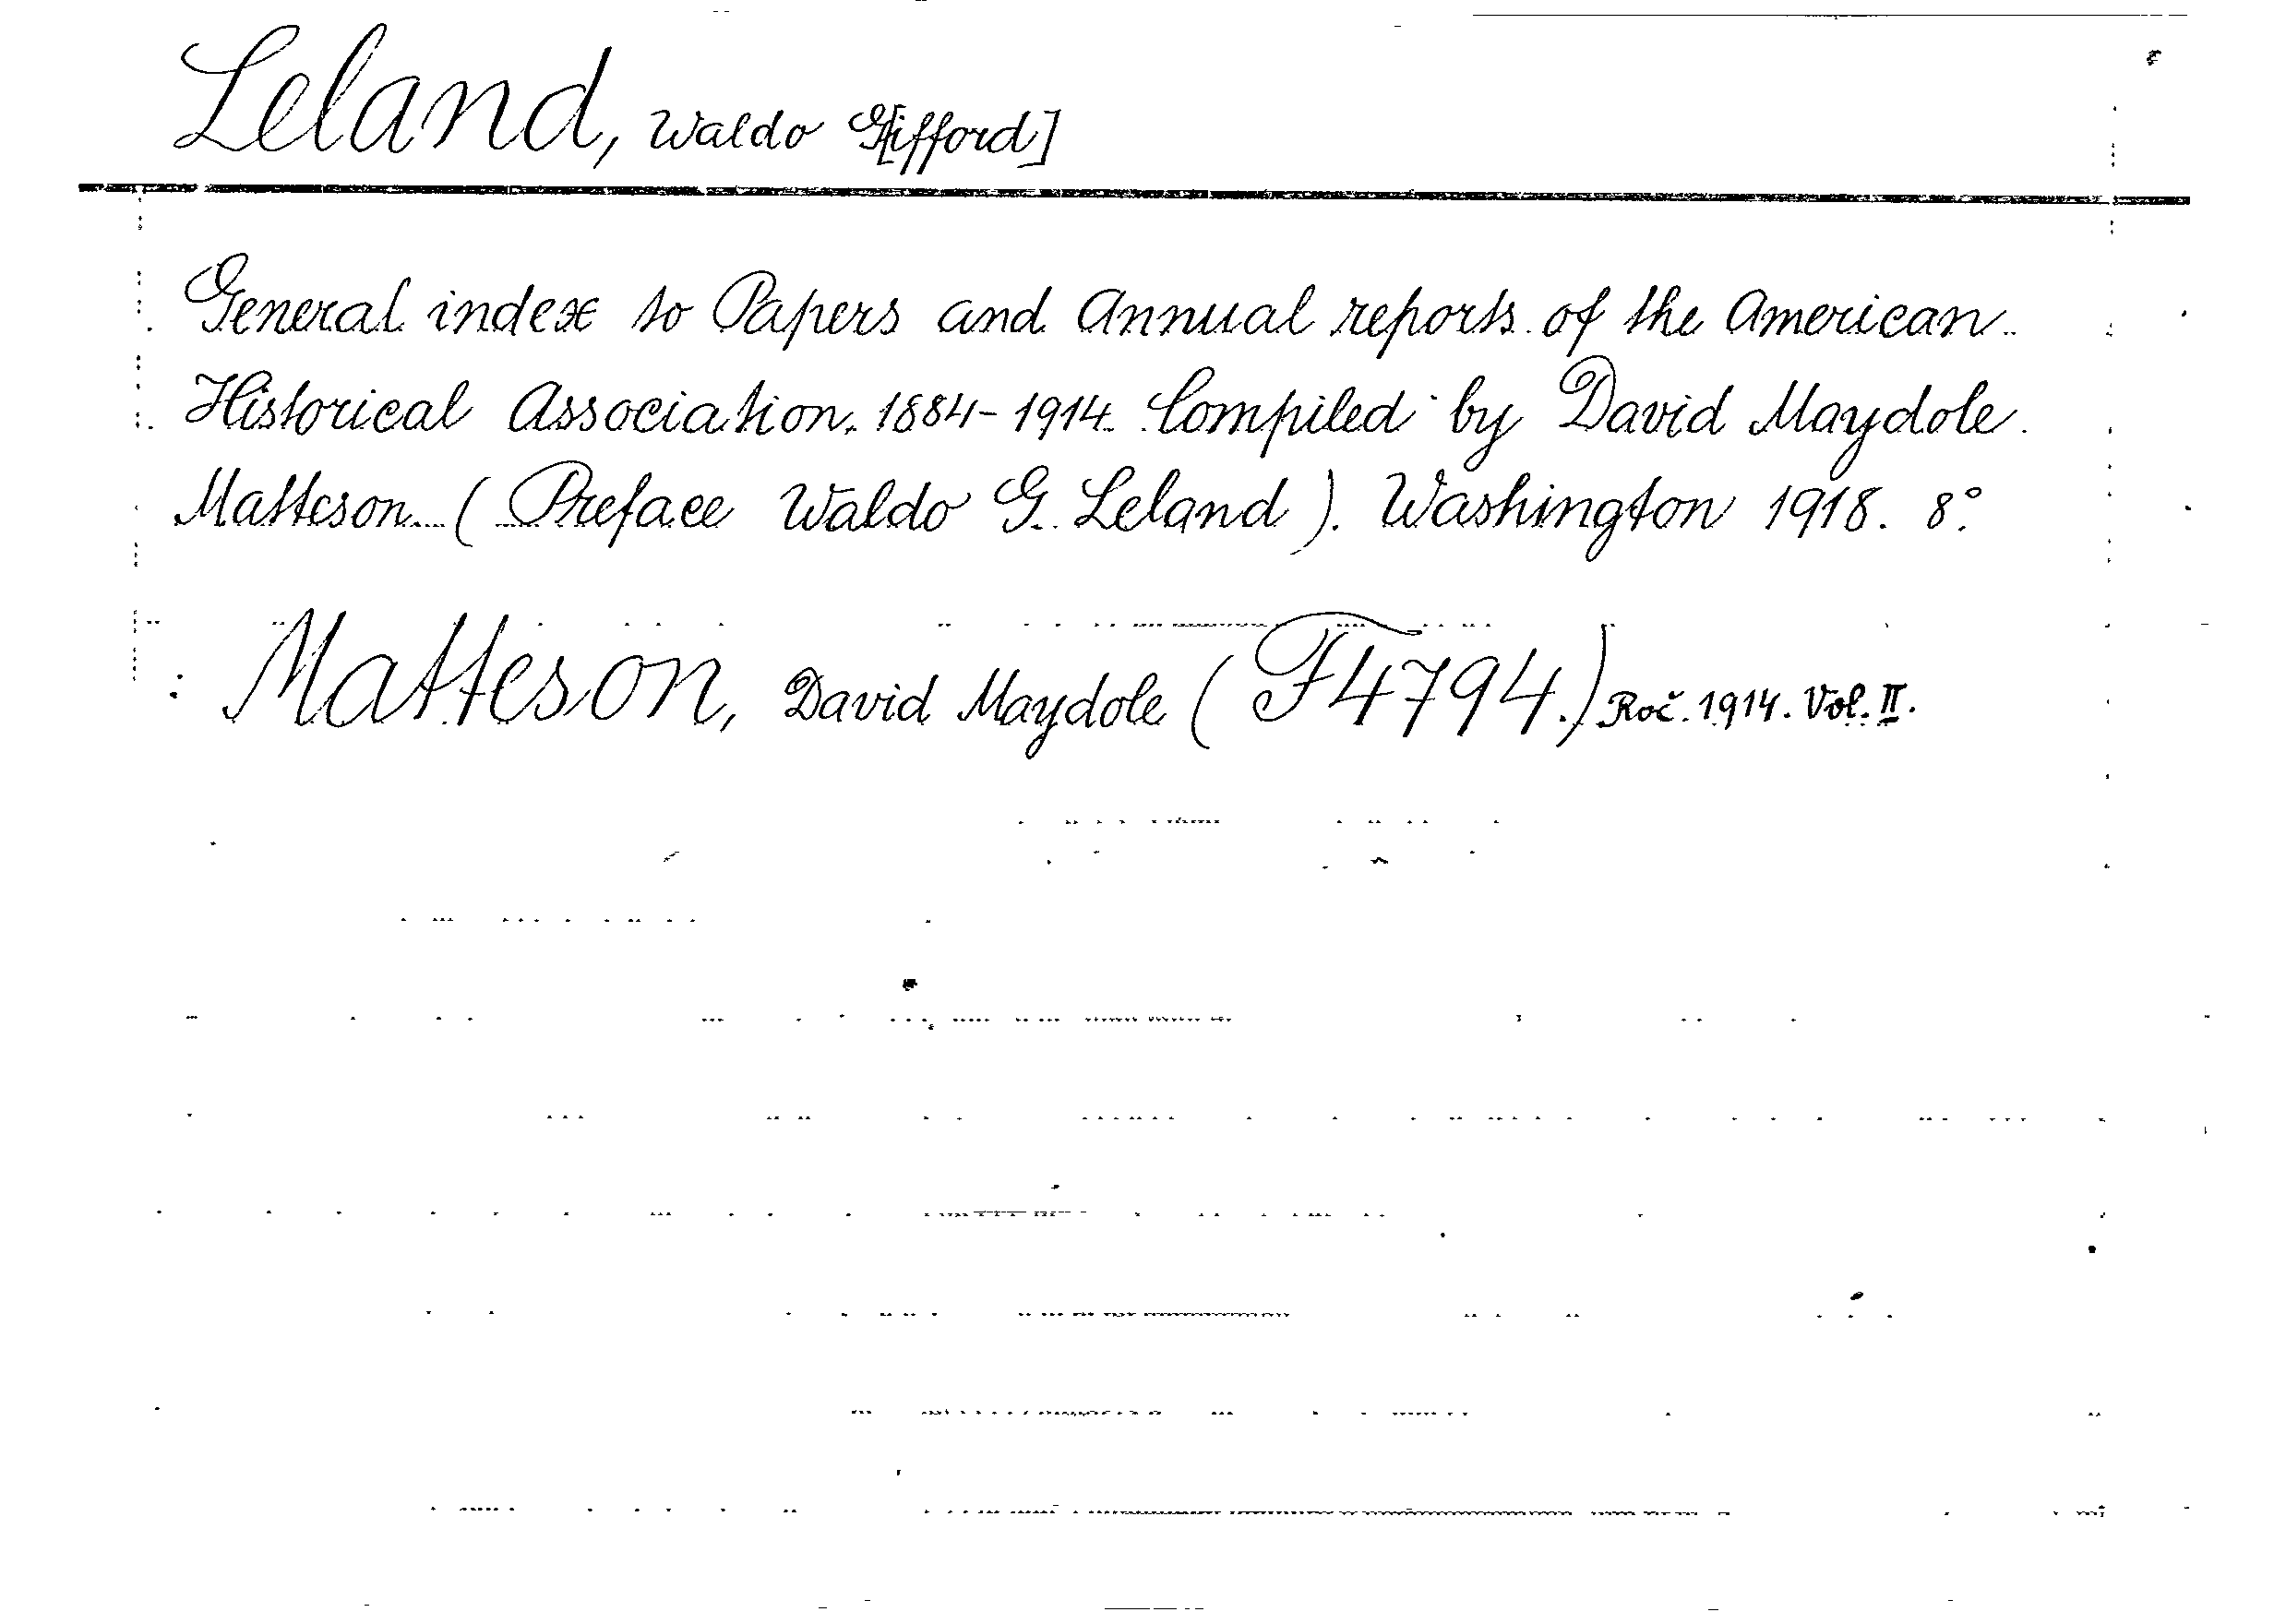 Leland, Waldo G[ifford]
General index to Papers and Annual reports of the American
Historical Association, 1884-1914. Compiled by David Maydole
Matteson. (Preface Waldo G. Leland). Washington 1918. 8°.
Matteson, David Maydole (F4794.) Roč. 1914. Vol. II.